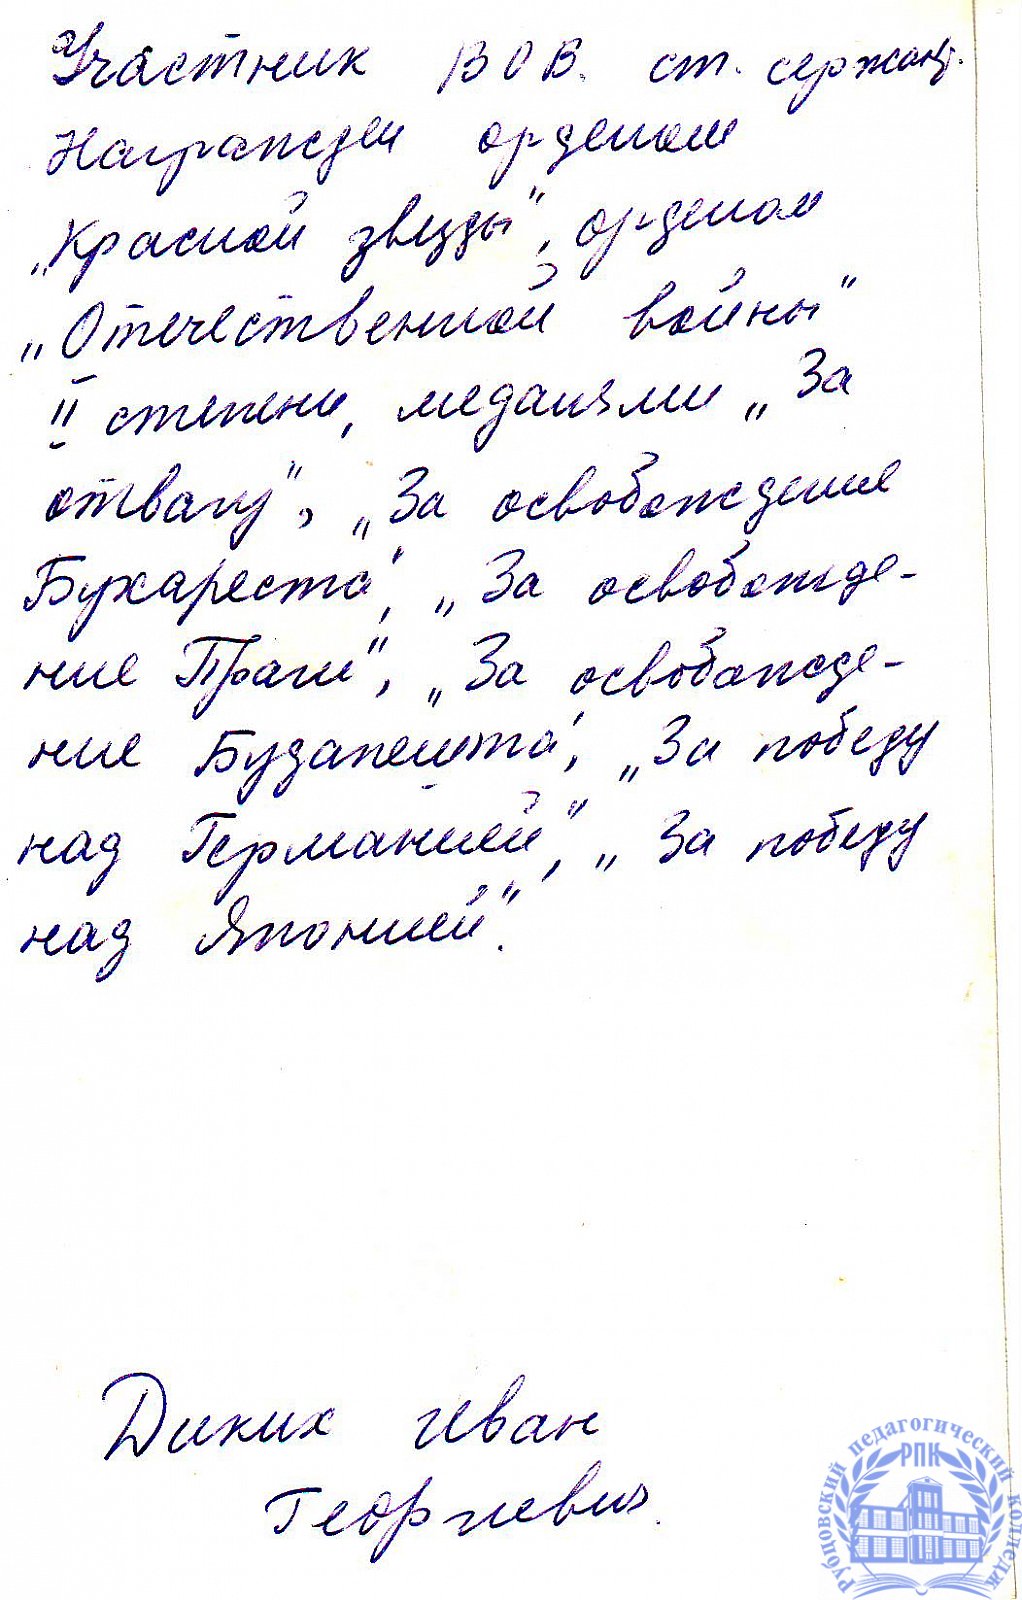 Участник ВОВ. ст. сержант.
Награжден орденом
„Красной звезды", орденом
„Отечественной войны"
II степени, медалями „За
отвагу", „За освобождение
Бухареста", „За освобожде-
ние Праги", „За освобожде-
ние Будапешта", „За победу
над Германией", „За победу
над Японией".
Диких Иван
Георгиевич.
Рубцовский педагогический колледж
РПК